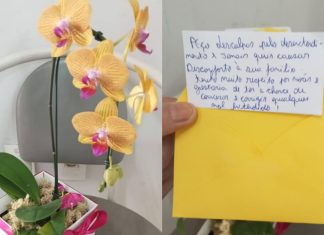 Peço desculpas pelo desentendi-
mento e jamais quis causar
Desconforto a sua família
tenho muito respeito por vocês e
gostaria de ter a chance de
conversar e corrigir qualquer
mal entendido!